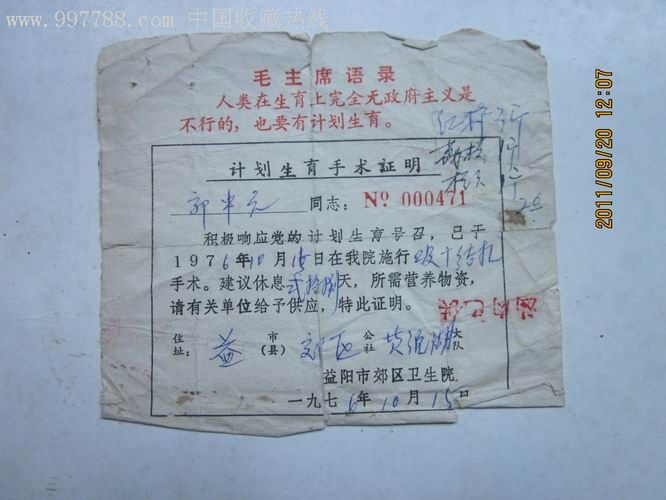 www.997788.com 中国收藏热线
毛主席语录
人类在生育上完全无政府主义是
不行的，也要有计划生育。
红糖 3斤
计划生育手术证明
同志： №000471
积极响应党的计划生育号召，已于
1976年10月15日在我院施行 结扎
手术。建议休息 天，所需营养物资，
请有关单位给予供应，特此证明。
住址： 益 市（县） 郊区 公社 大队
益阳市郊区卫生院
一九七6年10月15日
2011/09/20 12:07